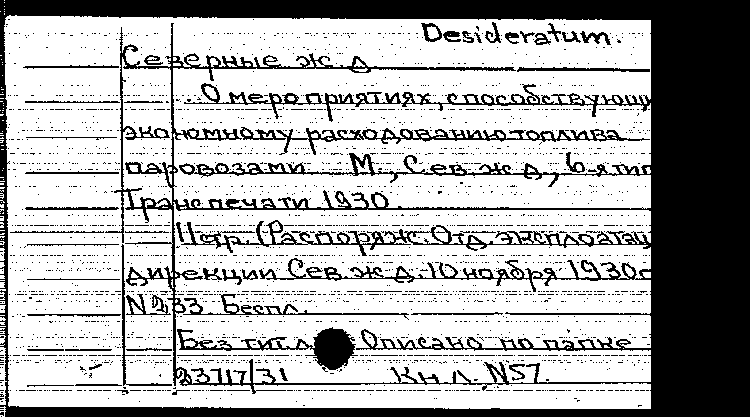 Desideratum.
Северные ж д
О мероприятиях, способствующи
экономному расходованию топлива
паровозами. М., Сев. ж д, 6-я тип
Транспечати 1930.
11 стр. (Распоряж. Отд. эксплоатац
дирекции Сев. ж д. 10 ноября 1930г
N 233. Беспл.
Без тит. л. Описано по папке
23717/31 Кн. Л. N57.